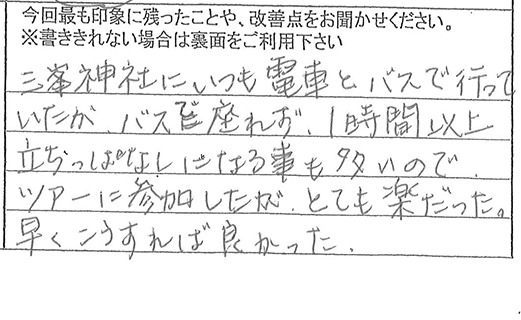 今回最も印象に残ったことや、改善点をお聞かせください。
※書ききれない場合は裏面をご利用下さい
三峯神社にいつも電車とバスで行って
いたが、バスで座れず、1時間以上
立ちっぱなしになる事も多いので、
ツアーに参加したが、とても楽だった。
早くこうすれば良かった。